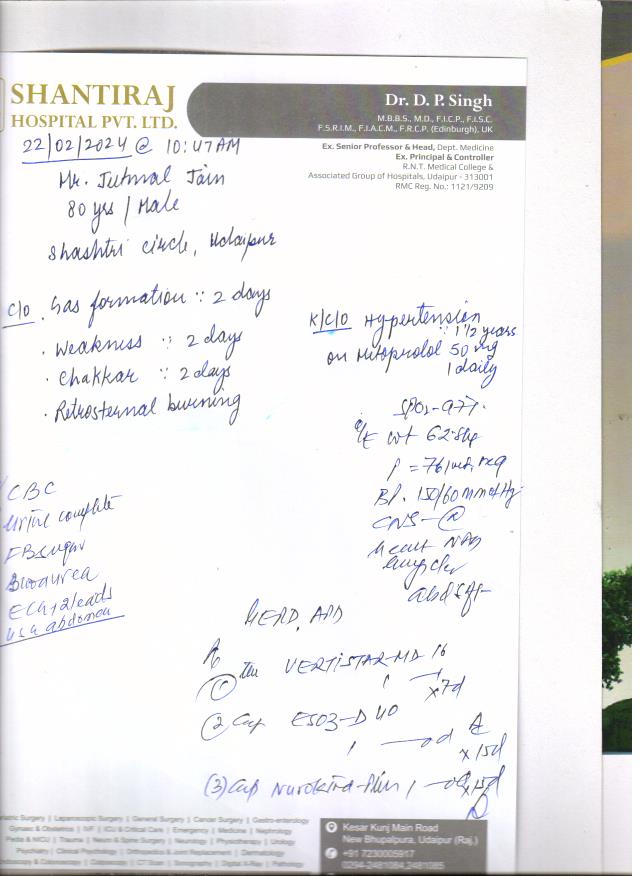 SHANTIRAJ
HOSPITAL PVT. LTD.
Dr. D. P. Singh
M.B.B.S., M.D., F.I.C.P., F.I.S.C.
F.S.R.I.M., F.I.A.C.M., F.R.C.P. (Edinburgh), UK
Ex. Senior Professor & Head, Dept. Medicine
Ex. Principal & Controller
R.N.T. Medical College &
Associated Group of Hospitals, Udaipur - 313001
RMC Reg. No.: 1121/9209
22/02/2024 @ 10:47AM
Mr. Jain
80 yrs / Male
Shashtri circle, Udaipur
C/O . Gas formation :: 2 days
. Weakness :: 2 days
. Chakkar :: 2 days
. Retrosternal burning
K/C/O Hypertension
:: 1 1/2 years
on 50 mg
1 daily
SPO2-97%
O/E wt 62.5kg
P = 76/min, reg
BP. 150/60mmHg
CNS-
Heart NAD
abd
CBC
Urine complete
FBSugar
Blood urea
ECG 12 leads
USG abdomen
GERD, APD
① VERTISTAR-MD 16
1 x7d
② Cap ESO3-D 40
1 od x 15d
(3) Cap Nurokind-Plus 1 x 15d
Laparoscopic Surgery | General Surgery | Cancer Surgery | Gastro-enterology
Gynaec & Obstetrics | IVF | ICU & Critical Care | Emergency | Medicine | Nephrology
Pedia & NICU | Trauma | Neuro & Spine Surgery | Neurology | Physiotherapy | Urology
Psychiatry | Clinical Psychology | Orthopedics & Joint Replacement | Dermatology
Endoscopy & Colonoscopy | Colposcopy | CT Scan | Sonography | Digital X-Ray | Pathology
Kesar Kunj Main Road
New Bhupalpura, Udaipur (Raj.)
+91 7230005917
0294-2481084, 2481085